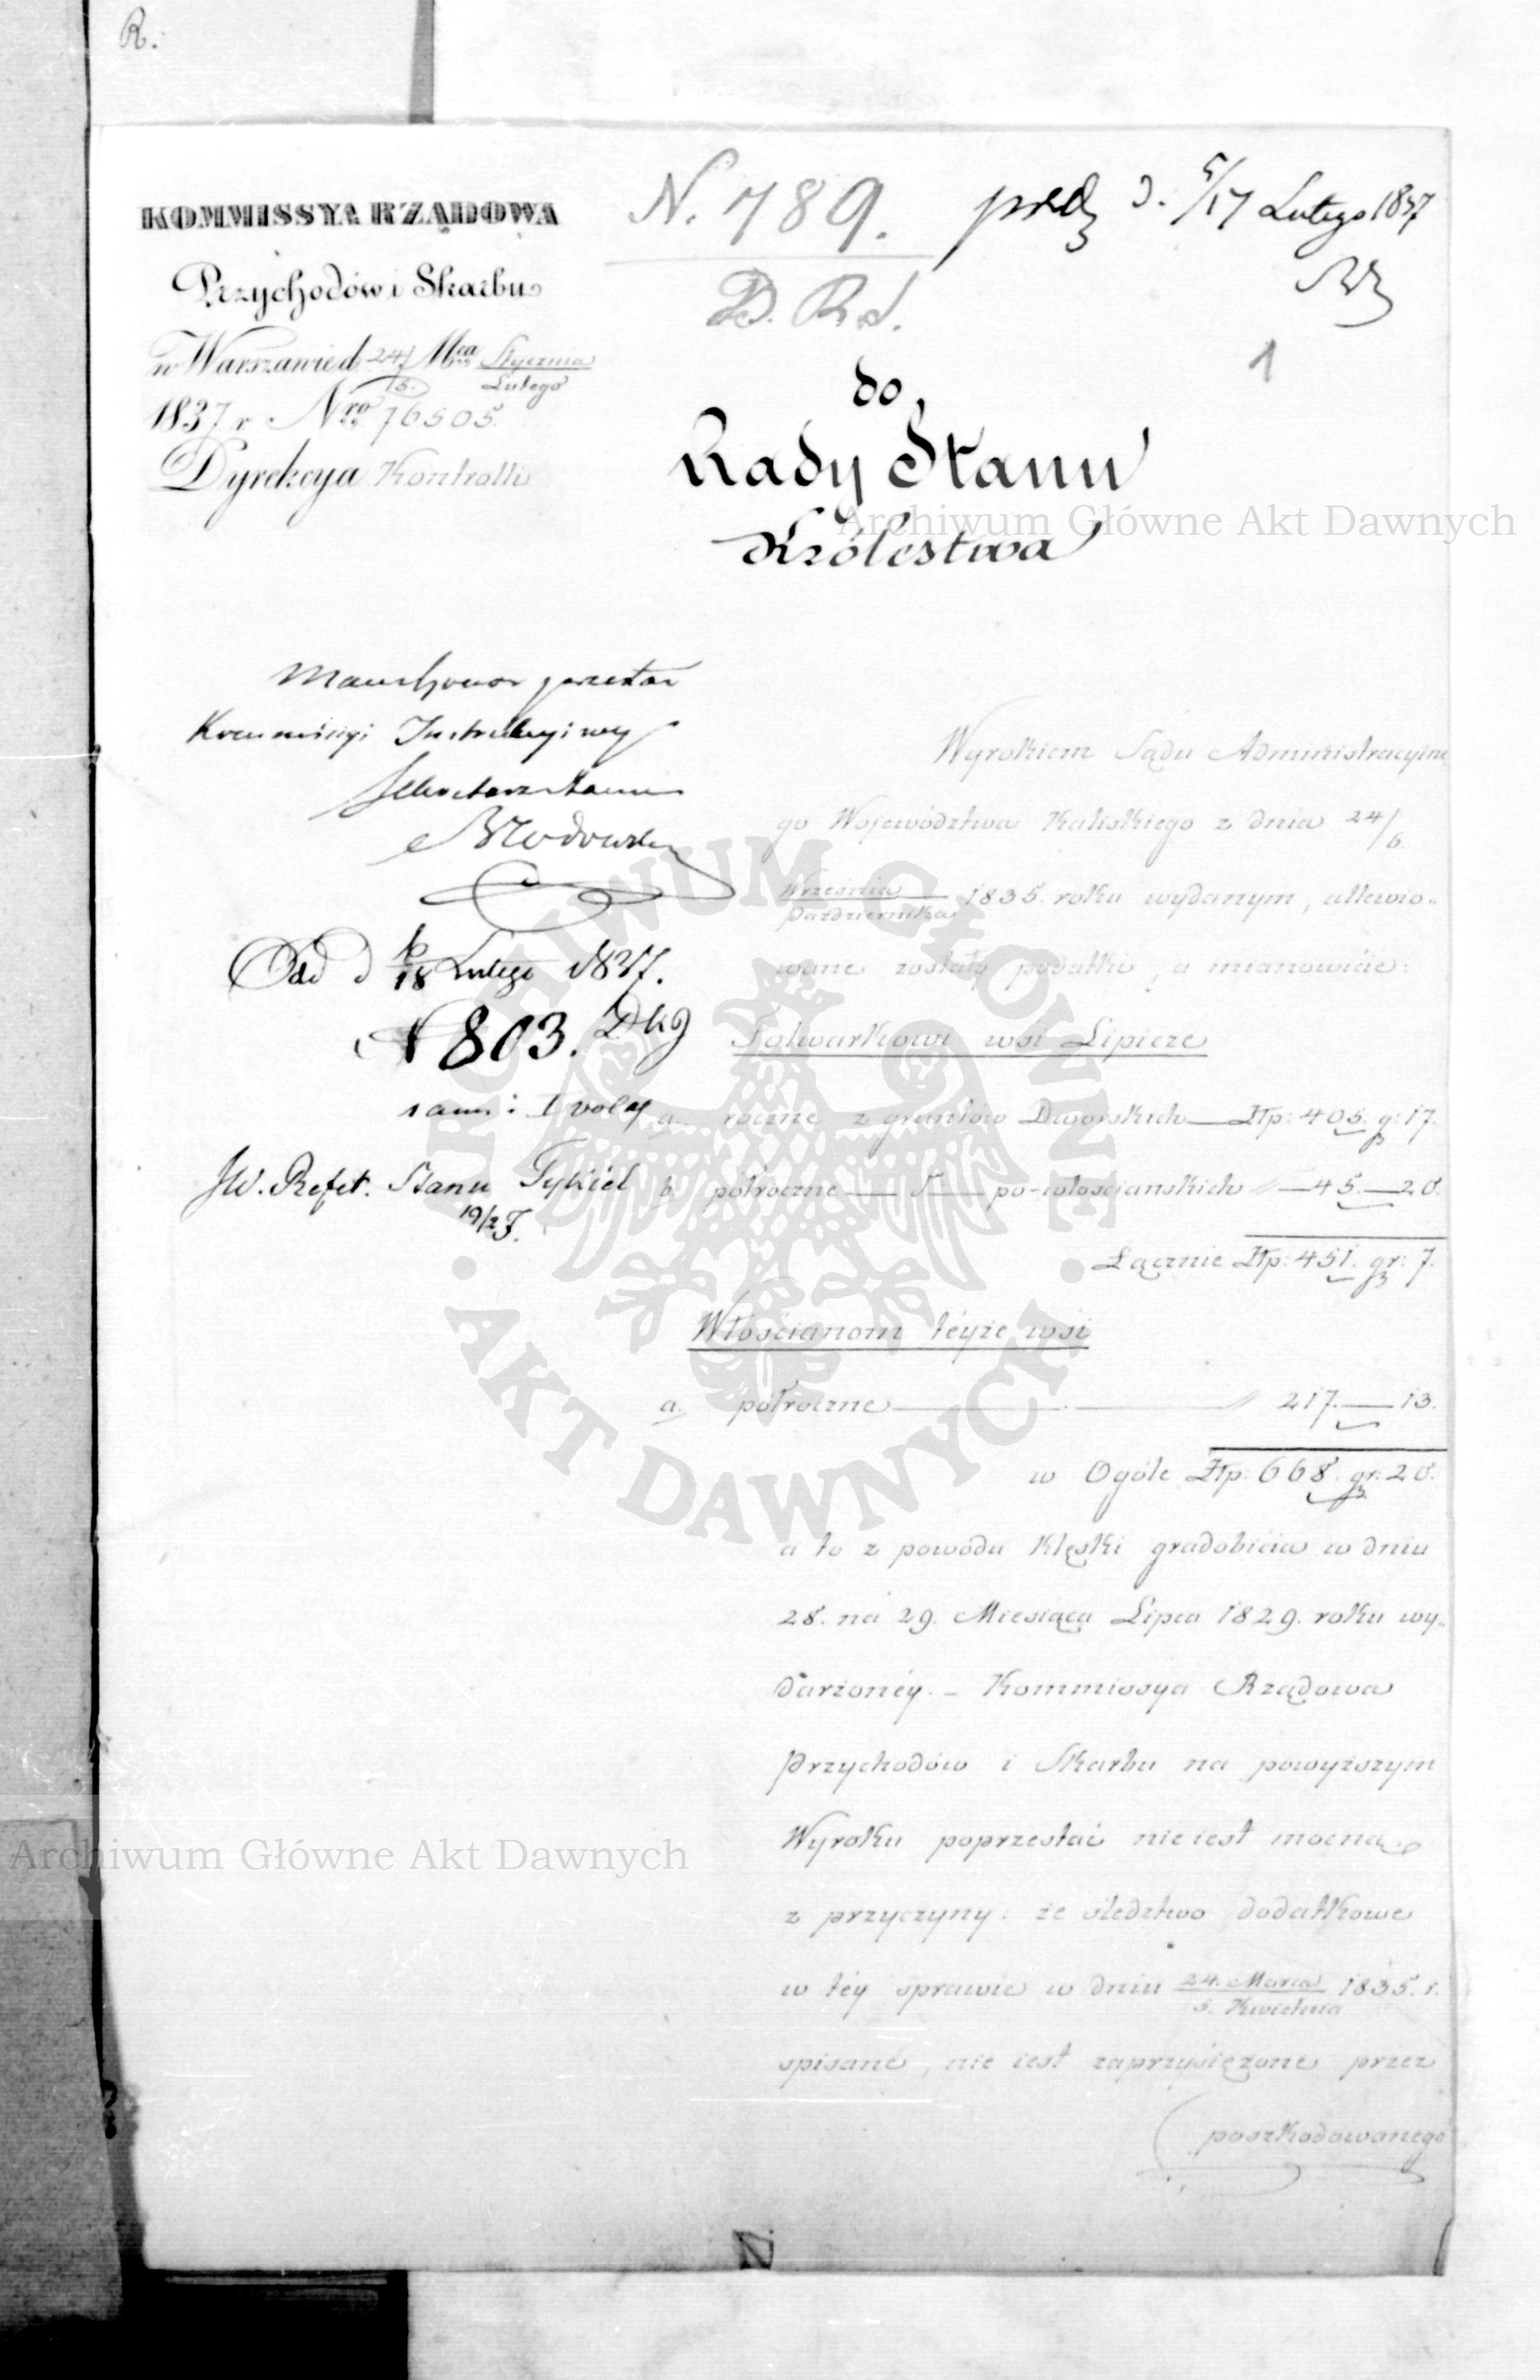 R.
KOMMISSYA RZĄDOWA
Przychodów i Skarbu
w Warszawie d. 24/5. Mca Stycznia/Lutego
1837 r. Nro 76505.
Dyrekcya Kontrolli
N. 789.
D. R. S.
d. 5/17 Lutego 1837
1
do
Rady Stanu
Królestwa
Archiwum Główne Akt Dawnych
Kommissyi Instrukcyiney
Od d 6/18 Lutego 1837.
N 803.
JW. Refer. Stanu Tykiel
Wyrokiem Sądu Administracyine
go Województwa Kaliskiego z dnia 24/6.
Września/Października 1835. roku wydanym, allewio-
wane zostały podatki, a mianowicie:
Folwarkowi wsi Lipicze
a. roczne z gruntów Dworskich Złp: 405. g: 17.
b. półroczne — po-włościańskich // — 45. — 20.
Łącznie Złp: 451. gr: 7.
Włościanom téyże wsi
a. półroczne — // 217. — 13.
w Ogóle Złp: 668. gr: 20.
a to z powodu klęski gradobicia w dniu
28. na 29. Miesiąca Lipca 1829. roku wy-
darzonéy. – Kommissya Rządowa
Przychodów i Skarbu na powyższym
Wyroku poprzestać nie iest mocna,
z przyczyny: że śledztwo dodatkowe
w téy sprawie w dniu 24. Marca/5. Kwietnia 1835. r.
spisane, nie iest zaprzysiężone przez
poszkodowanego
ARCHIWUM GŁÓWNE AKT DAWNYCH
Archiwum Główne Akt Dawnych